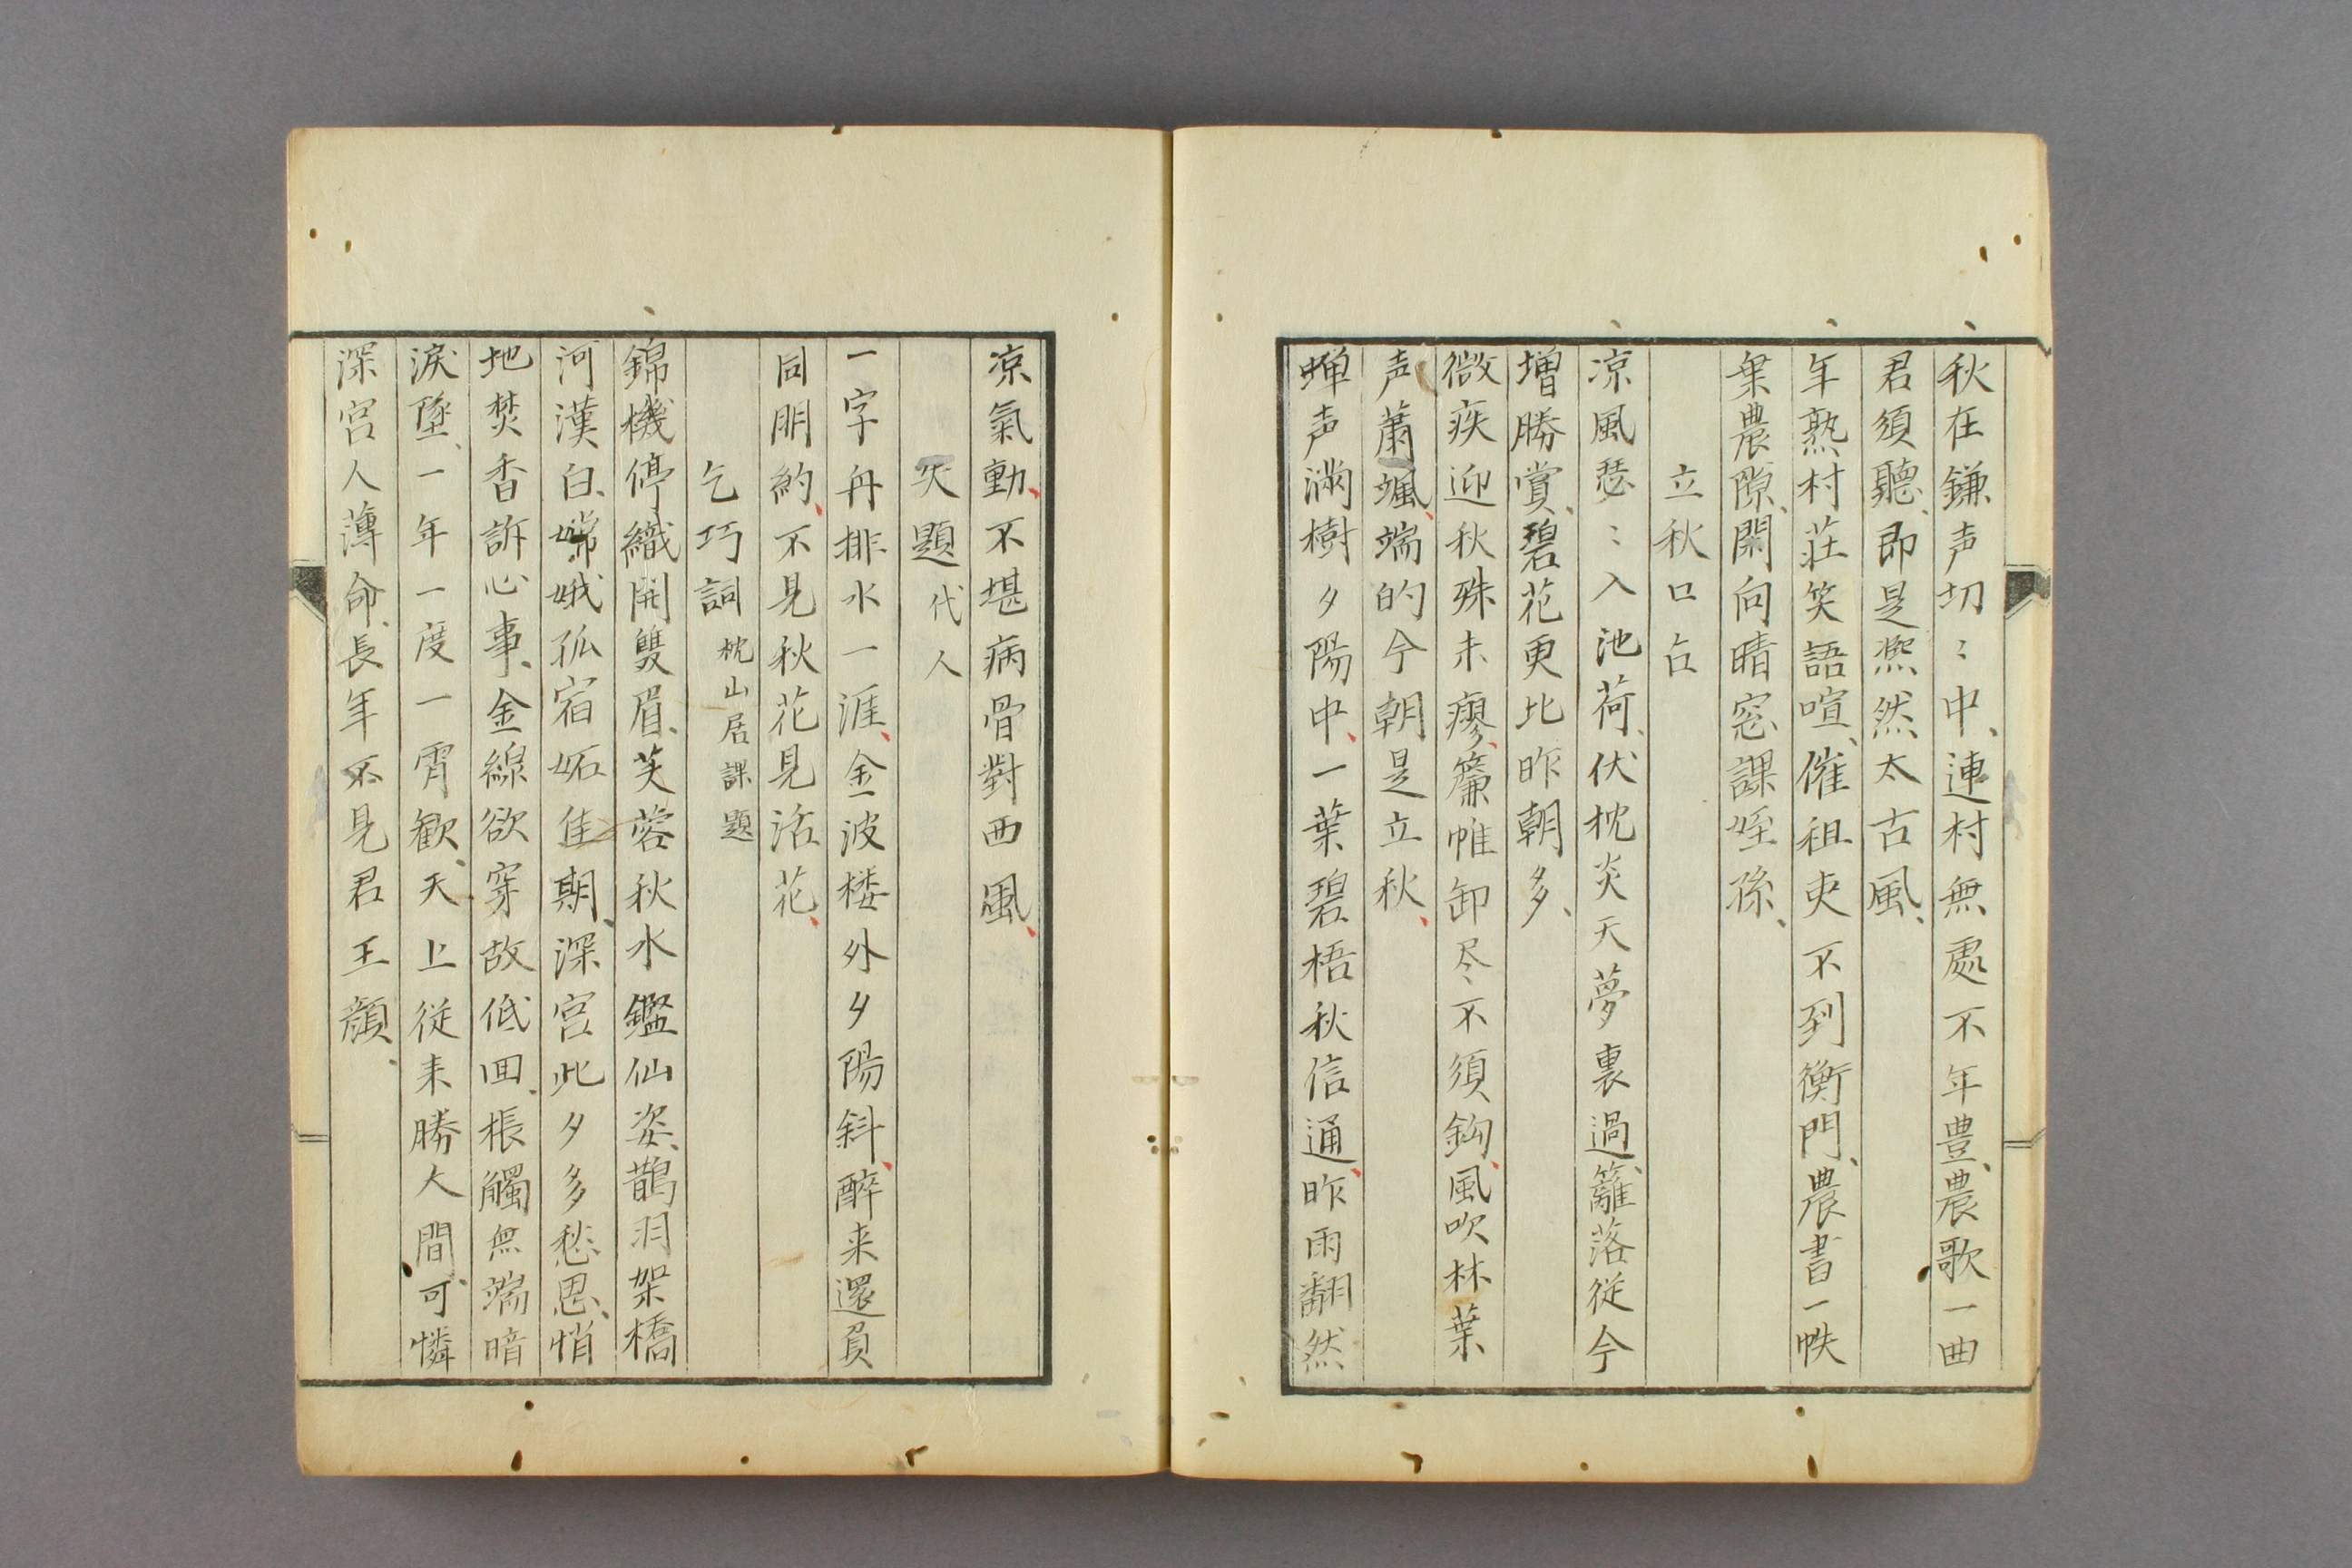 秋在鎌声切〻中、連村無處不年豊、農歌一曲
君須聽、即是熈然太古風、
年熟村荘笑語喧、催租吏不到衡門、農書一帙
乗農隙、閑向晴窓課姪孫、
立秋口占
凉風瑟〻入池荷、伏枕炎天夢裏過、籬落従今
増勝賞、碧花更比昨朝多、
微疾迎秋殊未瘳、簾帷卸尽不須鈎、風吹林葉
声蕭颯、端的今朝是立秋、
蝉声満樹夕陽中、一葉碧梧秋信通、昨雨翻然
凉氣動、不堪病骨對西風、
失題代人
一字舟排水一涯、金波楼外夕陽斜、醉来還負
同朋約、不見秋花見活花、
乞巧詞枕山居課題
錦機停織開雙眉、芙蓉秋水鑑仙姿、鵲羽架橋
河漢白、嫦娥孤宿妬佳期、深宮此夕多愁思、悄
地焚香訴心事、金線欲穿故低回、棖觸無端暗
涙墜、一年一度一宵歓、天上従来勝人間、可憐
深宮人薄命、長年不見君王顔、